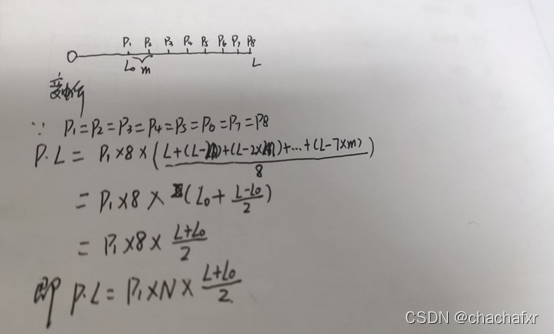 P1 P2 P3 P4 P5 P6 P7 P8
L0 m L
变电所
∵ P1=P2=P3=P4=P5=P6=P7=P8
P·L = P1×8×(L+(L-m)+(L-2×m)+...+(L-7×m))/8
= P1×8×(L0+(L-L0)/2)
= P1×8×(L+L0)/2
即 P·L = P1×N×(L+L0)/2
CSDN @chachafxr